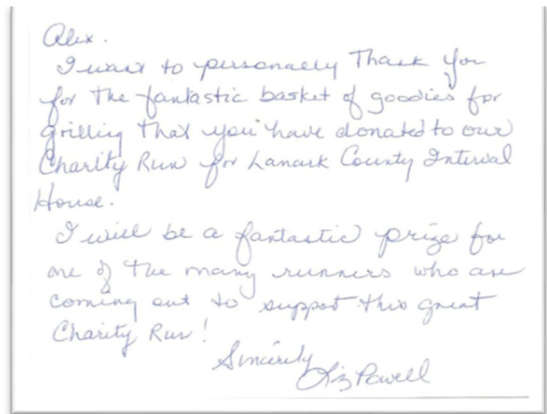 Alex.
I want to personally Thank you
for the fantastic basket of goodies for
grilling that you have donated to our
Charity Run for Lanark County Interval
House.
I will be a fantastic prize for
one of the many runners who are
coming out to support this great
Charity Run!
Sincerely
Liz Powell